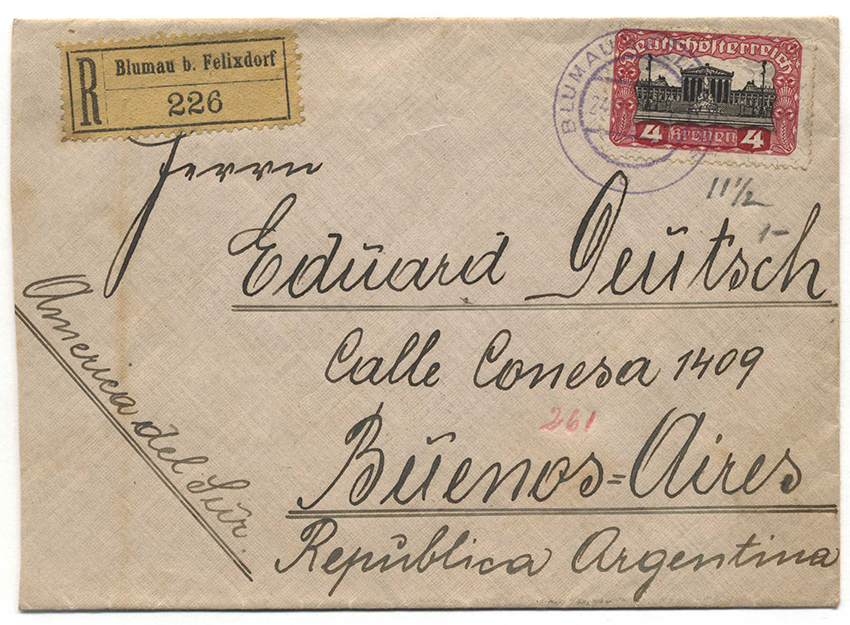 R
Blumau b. Felixdorf
226
BLUMAU
Deutschösterreich
4 Kronen 4
11 1/2
1-
Herrn
Eduard Deutsch
Calle Conesa 1409
261
Buenos=Aires
República Argentina
America del Sur.